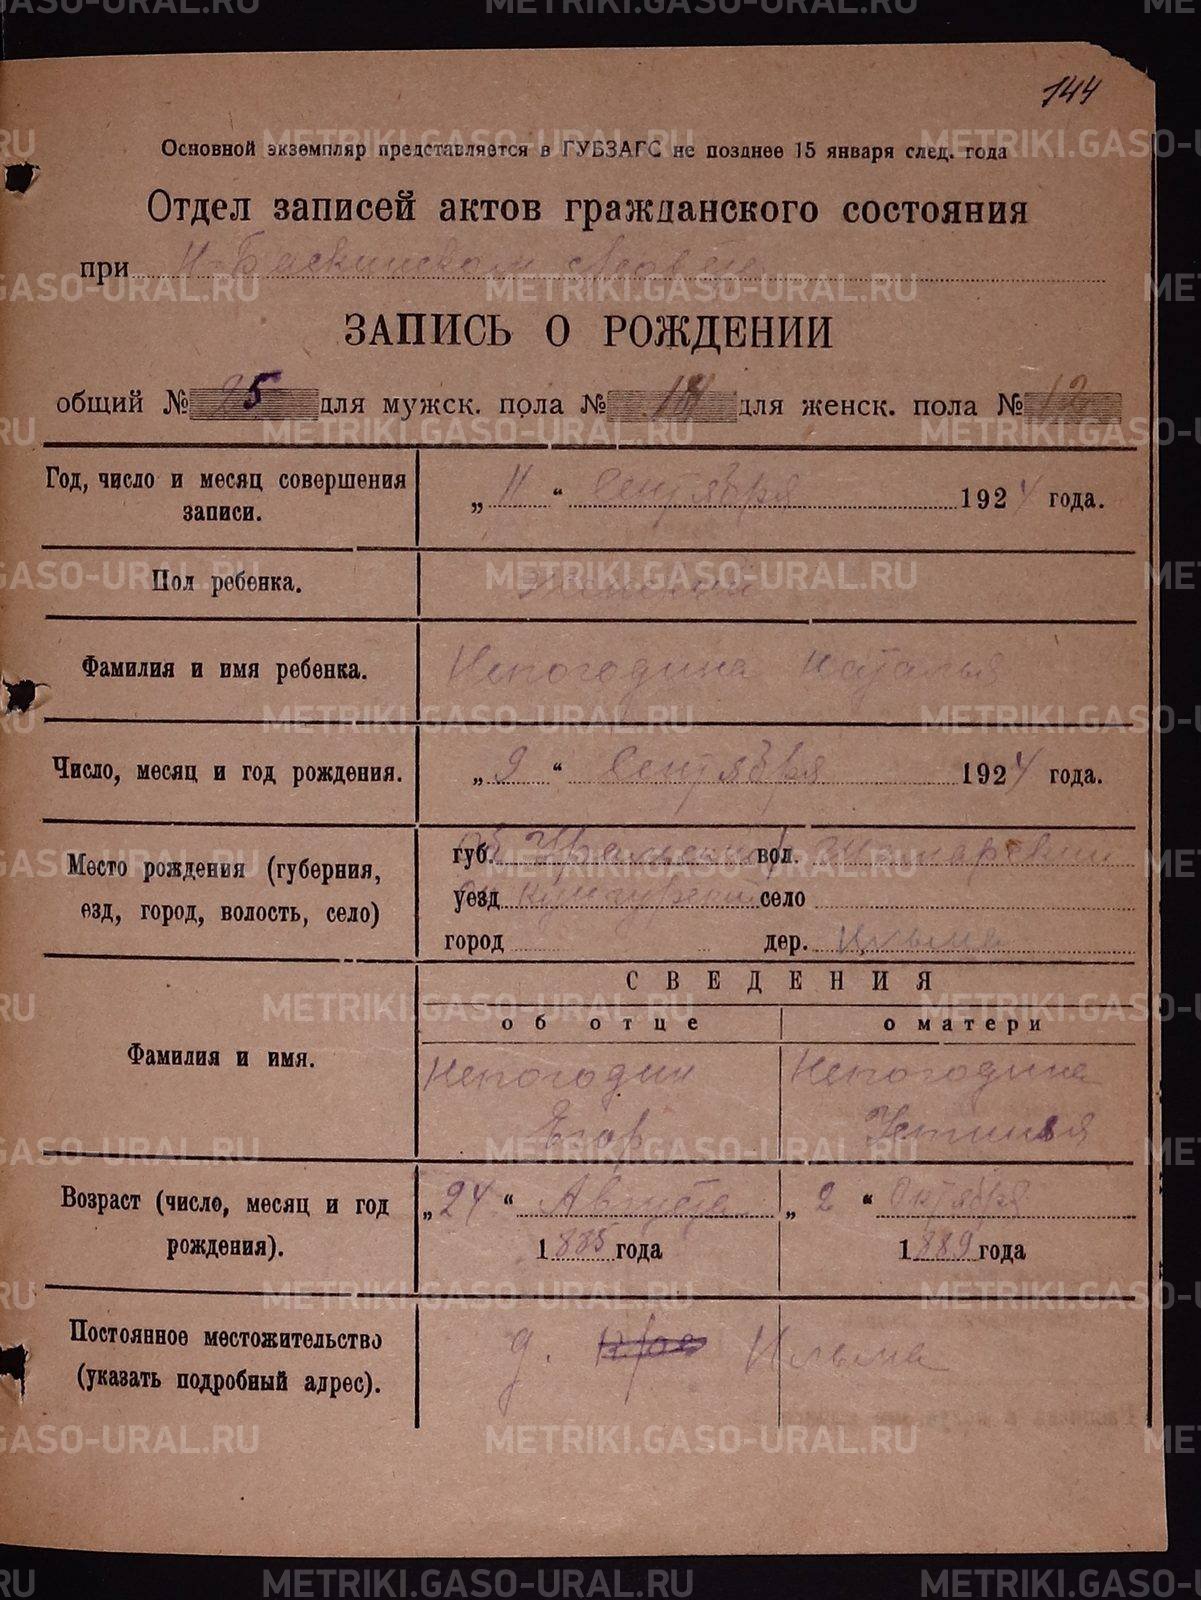 144
Основной экземпляр представляется в ГУБЗАГС не позднее 15 января след. года
Отдел записей актов гражданского состояния
при Н-Баскинском Совете
ЗАПИСЬ О РОЖДЕНИИ
общий № 25 для мужск. пола № для женск. пола № 12
Год, число и месяц совершения записи.
„11“ Сентября 1924 года.
Пол ребенка.
Женский
Фамилия и имя ребенка.
Непогодина Наталья
Число, месяц и год рождения.
„9“ Сентября 1924 года.
Место рождения (губерния, езд, город, волость, село)
губ. Уральской вол.
уезд Кунгурский село
город дер. Ильма
СВЕДЕНИЯ
об отце
о матери
Фамилия и имя.
Непогодин Егор
Непогодина Устинья
Возраст (число, месяц и год рождения).
„24“ Августа 1885 года
„2“ Октября 1889 года
Постоянное местожительство (указать подробный адрес).
д. Ильма
METRIKI.GASO-URAL.RU